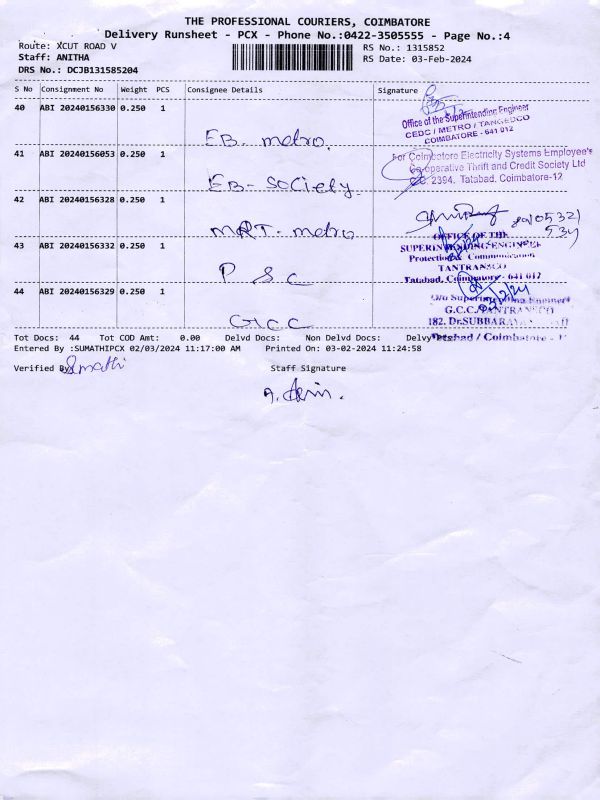 THE PROFESSIONAL COURIERS, COIMBATORE
Delivery Runsheet - PCX - Phone No.:0422-3505555 - Page No.:4
Route: XCUT ROAD V
RS No.: 1315852
Staff: ANITHA
RS Date: 03-Feb-2024
DRS No.: DCJB131585204
S No Consignment No Weight PCS Consignee Details Signature
40 ABI 20240156330 0.250 1
EB. metro.
Office of the Superintending Engineer
CEDC / METRO / TANGEDCO
COIMBATORE - 641 012
41 ABI 20240156053 0.250 1
EB- Society.
For Coimbatore Electricity Systems Employee's
Co-operative Thrift and Credit Society Ltd
C.C. 2394, Tatabad, Coimbatore-12
42 ABI 20240156328 0.250 1
MRT. metro
43 ABI 20240156332 0.250 1
P S C
OFFICE OF THE
SUPERINTENDING ENGINEER
Protection & Communication
TANTRANSCO
Tatabad, Coimbatore - 641 012
44 ABI 20240156329 0.250 1
GCC
O/o Superintending Engineer
G.C.C./TANTRANSCO
182, Dr.SUBBARAYAN
Tatabad / Coimbatore - 1
Tot Docs: 44 Tot COD Amt: 0.00 Delvd Docs: Non Delvd Docs:
Entered By :SUMATHIPCX 02/03/2024 11:17:00 AM Printed On: 03-02-2024 11:24:58
Verified By Sumathi
Staff Signature